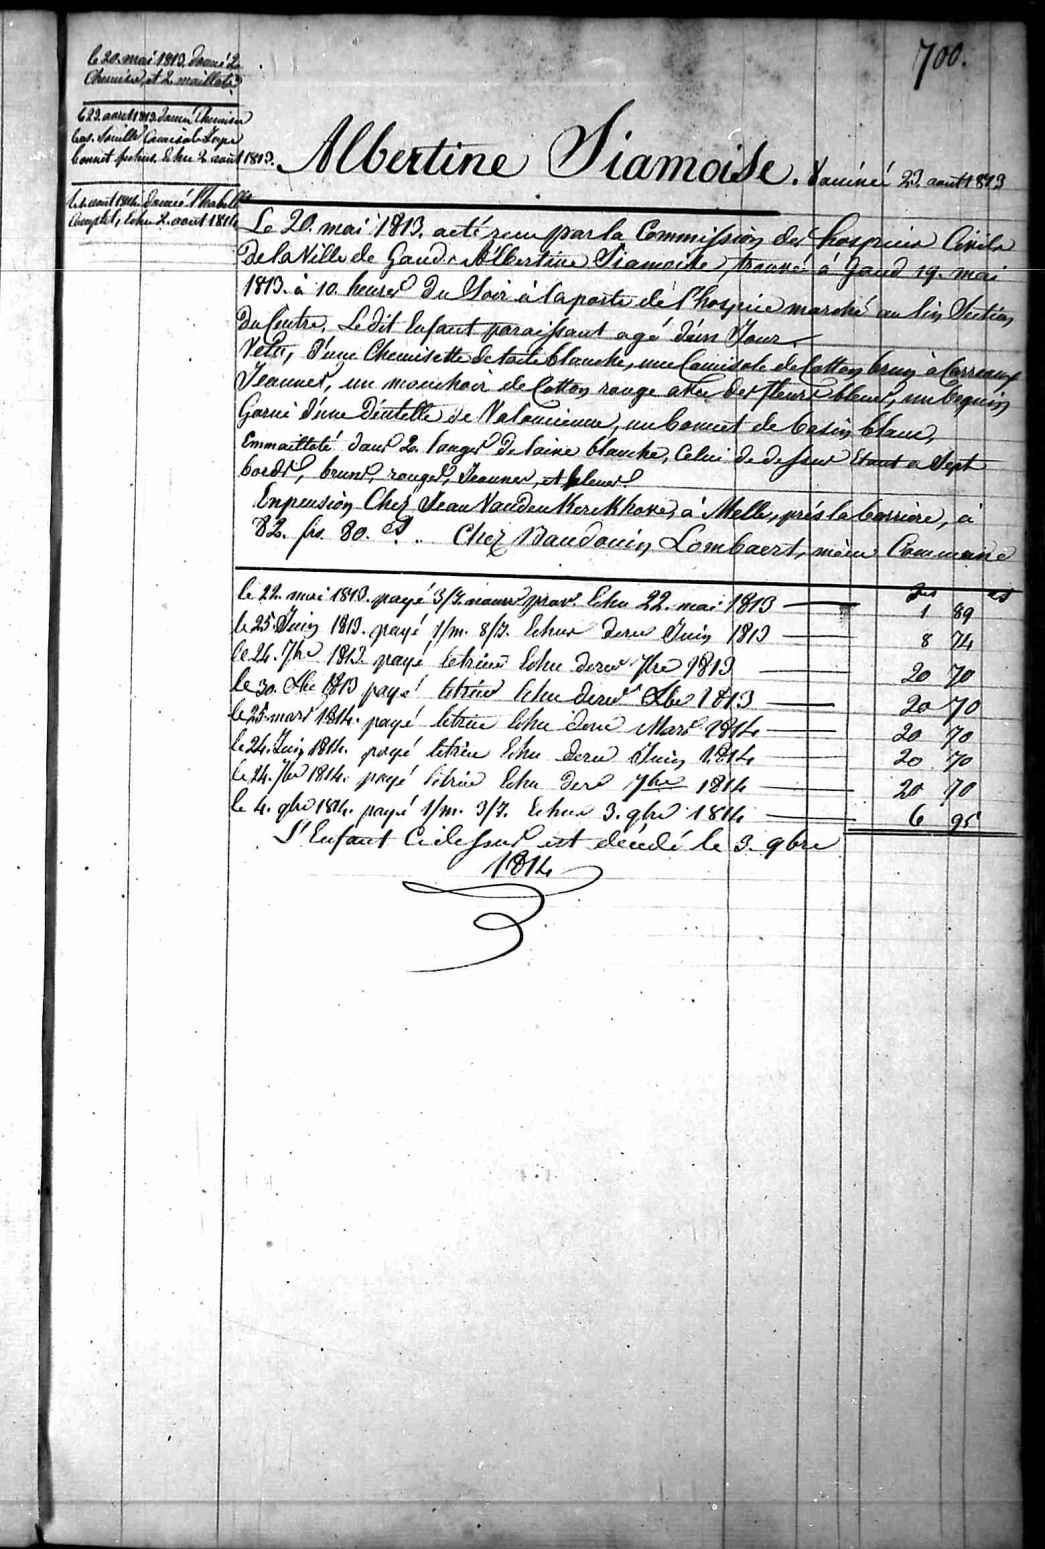 700.
le 20. mai 1813. donné 2
Chemises, et 2 maillots
le 23. aout 1813. donné Chemise
bas. Camisole Juppe
bonnet fichus. Echu 2 août 1813.
le 2. aout 1814. donné l'habille
Complet, Echu 2. aout 1814
Albertine Siamoise. Vaciné 23. août 1813
Le 20. mai 1813. a été recu par la Commission des hospices Civils
De la Ville de Gand. Albertine Siamoise, trouvé à Gand 19. mai
1813. à 10. heures du Soir à la porte de l'hospice marché au lin Section
Du Centre, Le dit Enfant paraissant agé d'un Jour.
Vetu, d'une Chemisette de toile blanche, une Camisole de Cotton brun à Carreaux
Jeaunes, un mouchoir de Cotton rouge avec des fleurs bleus, un beguin
Garni d'une déntelle de Valencienne, un bonnet de basin blanc,
Emmailloté dans 2. langes de laine blanche, Celui de dessus Etant a Sept
bords, bruns, rouges, Jeaunes, et bleus
En pension Chez Jean Vanden Kerckhove, à Melle, prés la barriere, à
82. frs. 80. cs. .. Chez Baudouin Lombaert, même Commune
frs cs
le 22. mai 1813. payé 3/J. nourr prov. Echu 22. mai 1813 — 1 89
le 25. Juin 1813. payé 1/m. 8/J. Echus dern Juin 1813 — 8 74
le 24. 7bre 1813. payé letrim Echu dern 7bre 1813 — 20 70
le 30. Xbre 1813 payé letrim Echu dern Xbre 1813 — 20 70
le 25. mars 1814. payé letrim Echu dern Mars 1814 — 20 70
le 24. Juin 1814. payé letrim Echu dern Juin 1814 — 20 70
le 24. 7bre 1814. payé letrim Echu dern 7bre 1814 — 20 70
le 4. 9bre 1814. payé 1/m. 3/J. Echus 3. 9bre 1814 — 6 95
L'Enfant Cidessus est décédé le 3. 9bre
1814